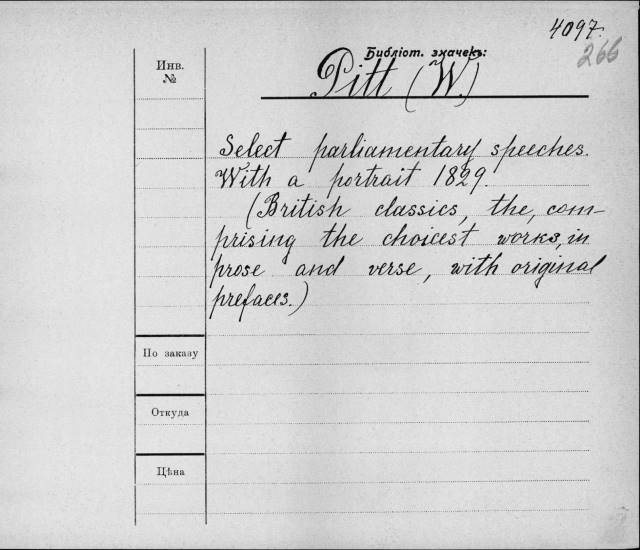 4097.
266
Библіот. значекъ:
Pitt (W.)
Инв.
№
Select parliamentary speeches.
With a portrait 1829.
(British classics, the, com-
prising the choicest works, in
prose and verse, with original
prefaces.)
По заказу
Откуда
Цѣна